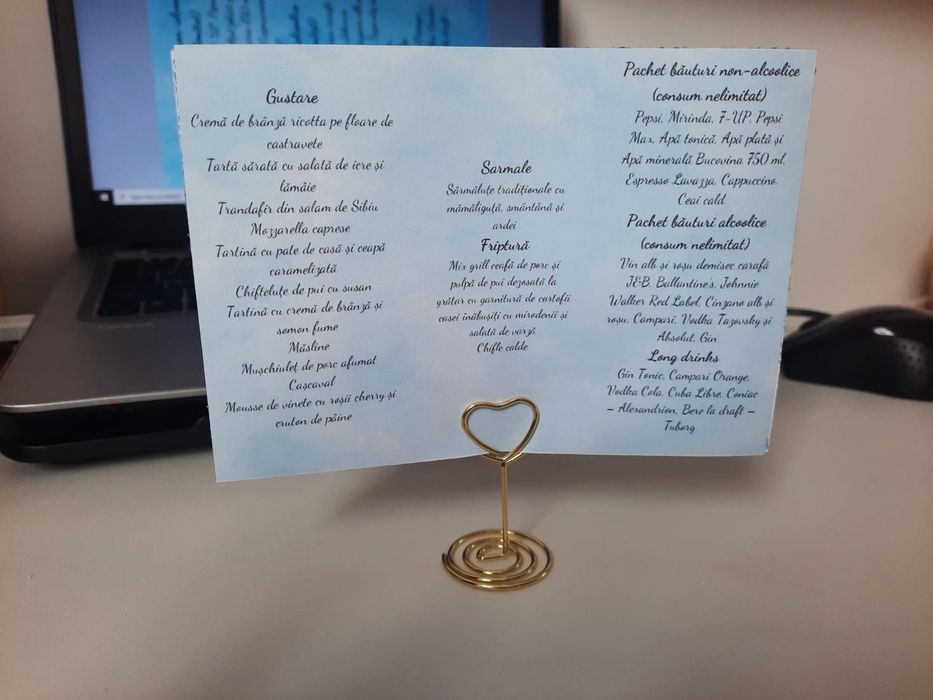 Gustare
Cremă de brânză ricotta pe floare de
castravete
Tartă sărată cu salată de icre și
lămâie
Trandafir din salam de Sibiu
Mozzarella caprese
Tartină cu pate de casă și ceapă
caramelizată
Chifteluțe de pui cu susan
Tartină cu cremă de brânză și
somon fume
Măsline
Mușchiuleț de porc afumat
Cașcaval
Mousse de vinete cu roșii cherry și
cruton de pâine
Sarmale
Sărmăluțe tradiționale cu
mămăliguță, smântână și
ardei
Friptură
Mix grill ceafă de porc și
pulpă de pui dezosată la
grătar cu garnitură de cartofii
casei înăbușiți cu mirodenii și
salată de varză
Chifle calde
Pachet băuturi non-alcoolice
(consum nelimitat)
Pepsi, Mirinda, 7-UP, Pepsi
Max, Apă tonică, Apă plată și
Apă minerală Bucovina 750 ml,
Espresso Lavazza, Cappuccino,
Ceai cald
Pachet băuturi alcoolice
(consum nelimitat)
Vin alb și roșu demisec carafă
J&B, Ballantine's, Johnnie
Walker Red Label, Cinzano alb și
roșu, Campari, Vodka Tazovsky și
Absolut, Gin
Long drinks
Gin Tonic, Campari Orange,
Vodka Cola, Cuba Libre, Coniac
– Alexandrion, Bere la draft –
Tuborg